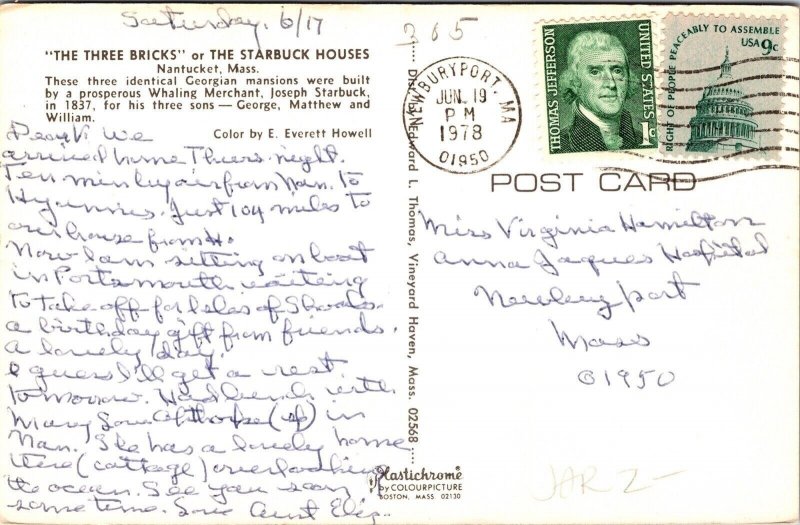 Saturday, 6/17
"THE THREE BRICKS" or THE STARBUCK HOUSES
Nantucket, Mass.
These three identical Georgian mansions were built
by a prosperous Whaling Merchant, Joseph Starbuck,
in 1837, for his three sons — George, Matthew and
William.
Color by E. Everett Howell
We
arrived home Thurs. night.
Ten min by air from Nan. to
Hyannis. Just 104 miles to
our house from H.
Now I am sitting on boat
in Portsmouth waiting
to take off for Isles of Shoals.
a birthday gift from friends.
A lovely day.
I guess I'll get a rest
tomorrow. Had lunch with
Mary Lou (sp) in
Nan. She has a lovely home
there (cottage) overlooking
the ocean. See you soon
sometime. Love Aunt
Dist. by Edward L. Thomas, Vineyard Haven, Mass. 02568
Plastichrome
by COLOURPICTURE
BOSTON, MASS. 02130
365
NEWBURYPORT, MA
JUN 19
PM
1978
01950
THOMAS JEFFERSON
UNITED STATES
1c
RIGHT OF PEOPLE PEACEABLY TO ASSEMBLE
USA 9c
POST CARD
Miss Virginia Hamilton
Anna Jaques Hospital
Newburyport
Mass
01950
JAR 2-